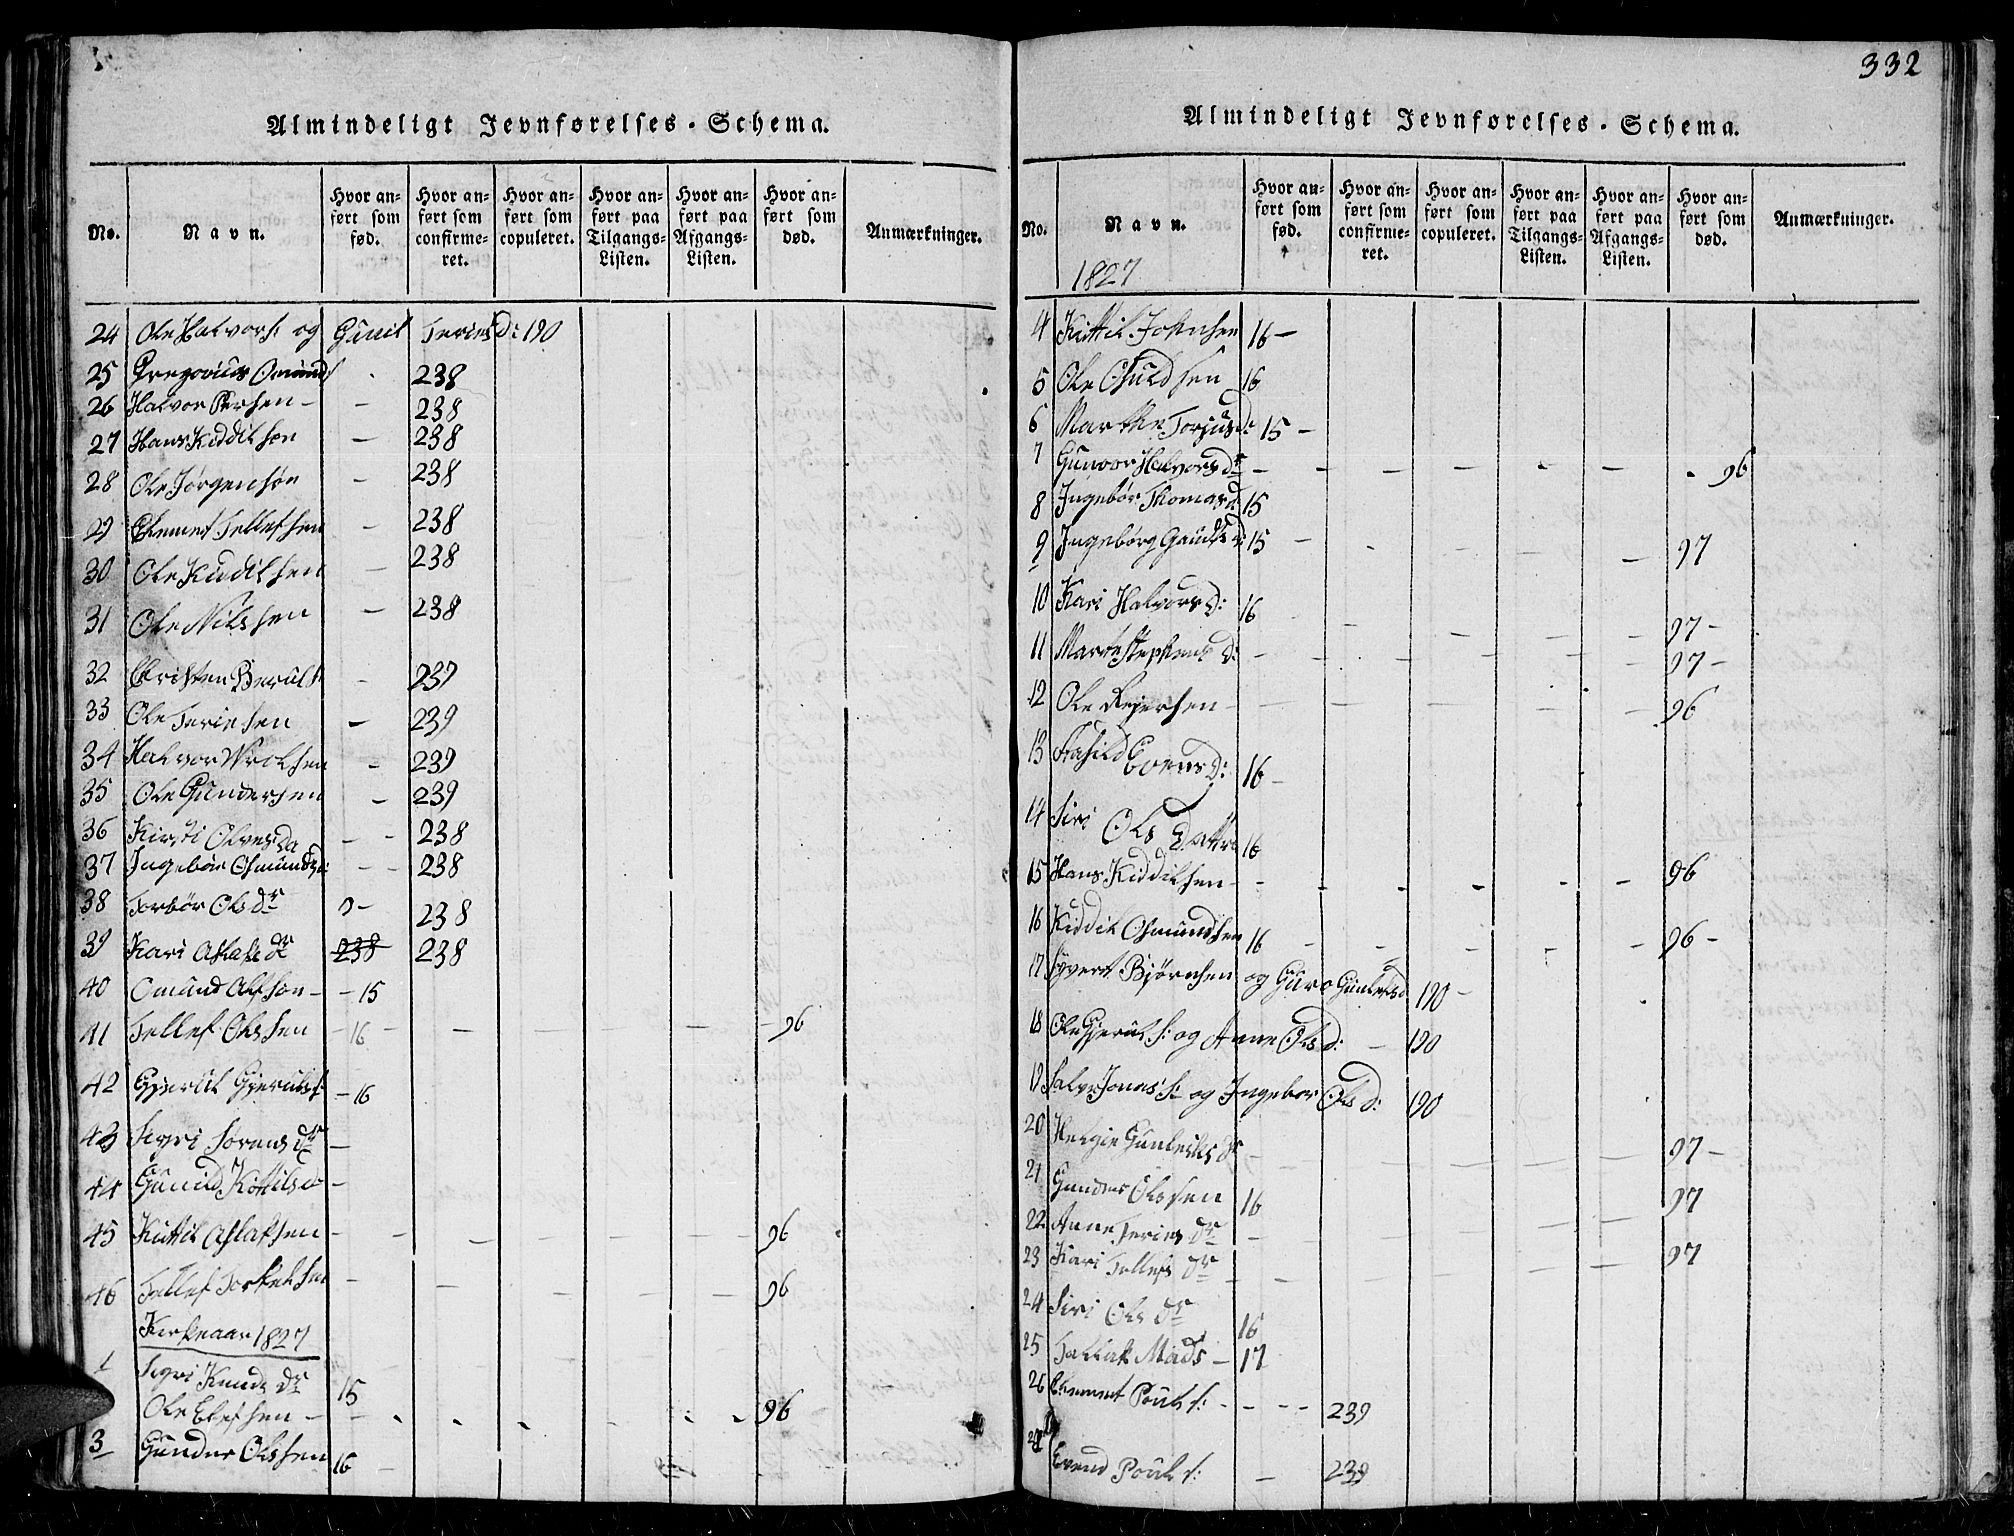 332
Almindeligt Jevnførelses-Schema.
No. Navn. Hvor anført som fød. Hvor anført som confirmeret. Hvor anført som copuleret. Hvor anført paa Tilgangs-Listen. Hvor anført paa Afgangs-Listen. Hvor anført som død. Anmærkninger.
24 Ole Halvors: og Gunil Teries D: 190
25 Gregorius Omunds - 238
26 Halvor Persen - - 238
27 Hans Kiddilsøn - 238
28 Ole Jørgensøn - 238
29 Clemet Tellefsen - 238
30 Ole Kiddilsen - 238
31 Ole Nilssen - 238
32 Christen Beruls - 239
33 Ole Teriesen - 239
34 Halvor Wrolsen - 239
35 Ole Gundersen - 239
36 Kirsti Olves da - - 238
37 Ingebør Osmunds d: - - 238
38 Torbør Ols dr 9- 238
39 Kari Aslaks dr 238 238
40 Omund Alfsøn - - 15
41 Tellef Olssen - 16 - - - - - 96
42 Gjerul Gjeruls s - 16
43 Sigri Sørens dr -
44 Gunild Kittils d -
45 Kittil Aslaksen - - - - - - 96
46 Tellef Torkelsen - - - - - 96
Kirkeaar 1827
1 Sigri Knuds dr 15
Ole Elefsen - - - - - - - 96
3 Gunder Olssen 16 -
Almindeligt Jevnførelses-Schema.
No. Navn. Hvor anført som fød. Hvor anført som confirmeret. Hvor anført som copuleret. Hvor anført paa Tilgangs-Listen. Hvor anført paa Afgangs-Listen. Hvor anført som død. Anmærkninger.
1827
4 Kittil Johnsen 16 -
5 Ole Osuldsen 16
6 Marthe Torjus d: 15 -
7 Gunvor Halvors dr - - - - - - - 96
8 Ingebør Thomas d: 15
9 Ingebørg Gaute d: 15 - - - - - 97
10 Kari Halvors D: 16 - - - - - 97 -
11 Marte Stephens D: - - - - - - 97 -
12 Ole Rejersen - - - - - - 96
13 Evens D: 16 -
14 Siri Ols Datter 16
15 Hans Kiddilsen - - - - - - - 96
16 Kiddil Osmundsen 16 - - - - - 96 -
17 Syvert Bjørnsen og Guro Gunlefs d 190 -
18 Ole Gjeruls s: og Anne Ols d: - 190
19 Salve Jonas s: og Ingebor Ols d: 190
20 Helgie Gunleiks dr - - - - - - 97 -
21 Gunder Olssen 16 97
22 Anne Teries dr - - - - - -
23 Kari Tellefs dr - - - - - - 97
24 Siri Ols dr 16
25 Tallak Mads - 17
26 Clement Pouls s: - - - - 239
27 Evend Pouls s: - 239